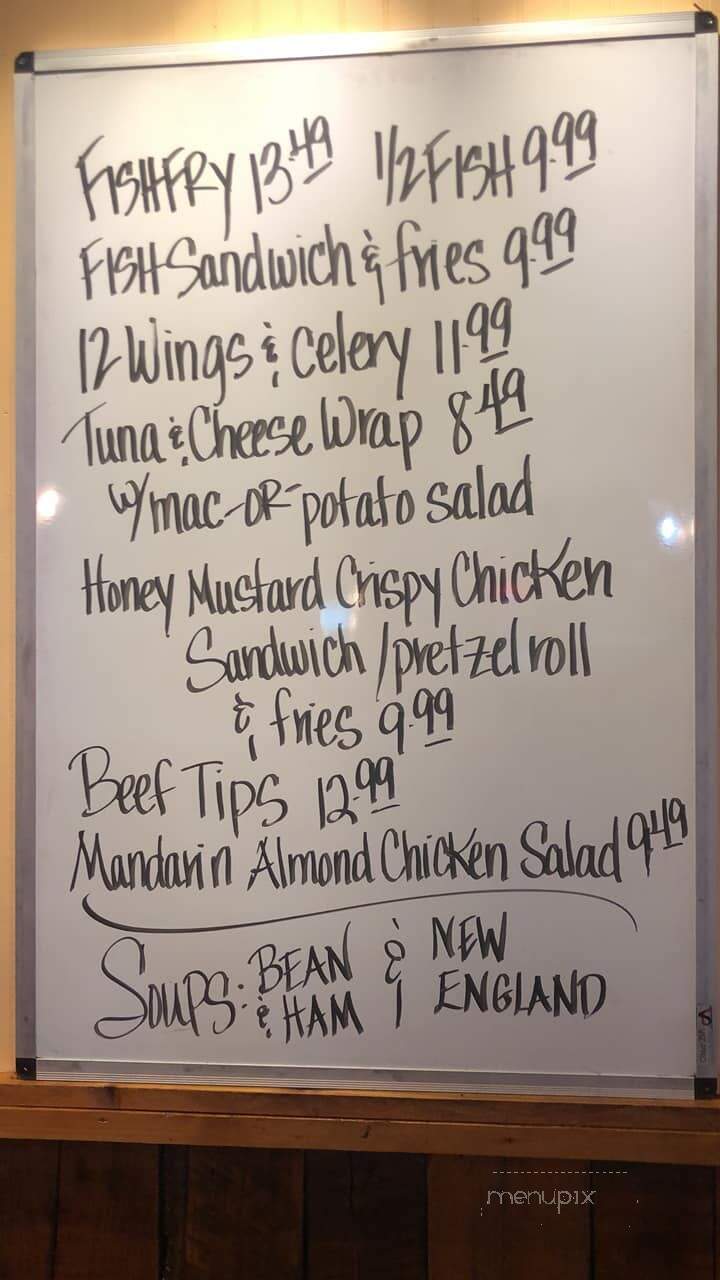 FISH FRY 13.49 1/2 FISH 9.99
FISH Sandwich & fries 9.99
12 Wings & Celery 11.99
Tuna & Cheese Wrap 8.49
w/mac-OR-potato salad
Honey Mustard Crispy Chicken
Sandwich /pretzel roll
& fries 9.99
Beef Tips 12.99
Mandarin Almond Chicken Salad 9.49
Soups: BEAN & HAM & NEW ENGLAND
menupix